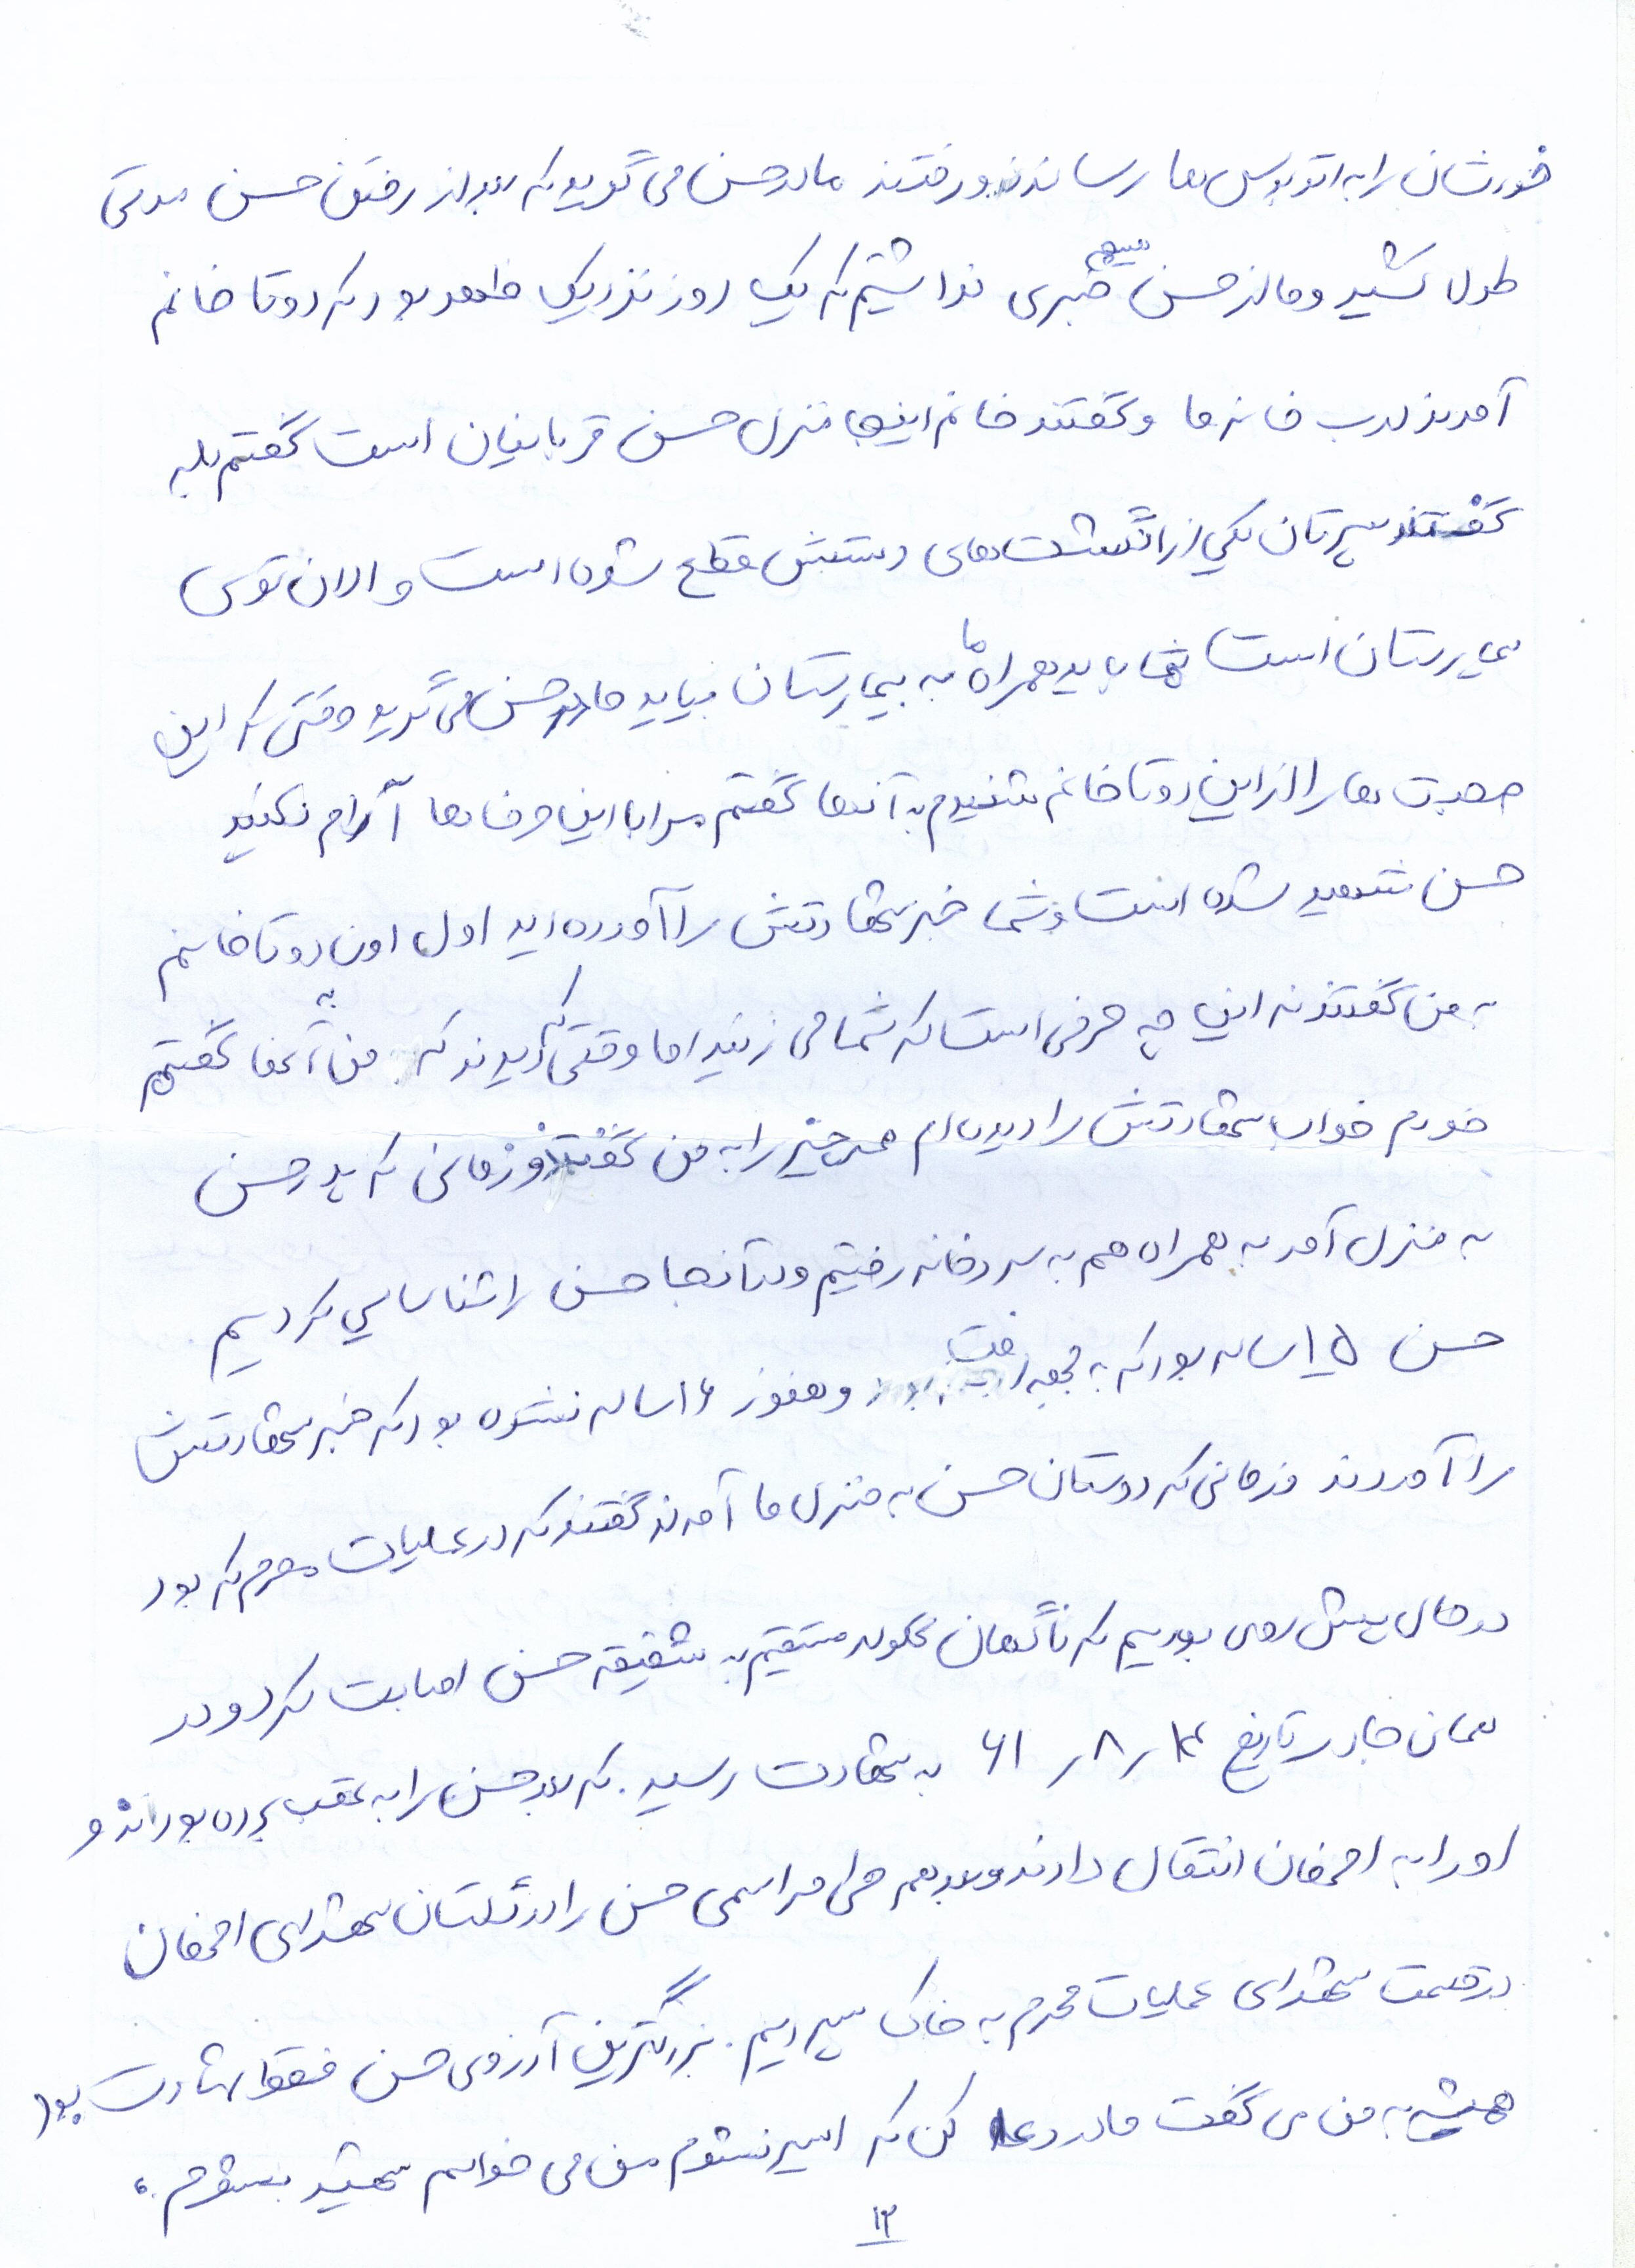 خودشان را به اتوبوس ها رساندند و رفتند مادر حسن می گوید که بعد از رفتن حسن مدتی
طول کشید و ما از حسن هیچ خبری نداشتیم که یک روز نزدیک ظهر بود که دو تا خانم
آمدند درب خانه ما و گفتند خانم اینجا منزل حسن قربانیان است گفتم بله
گفتند پسرتان یکی از انگشت های دستش قطع شده است و الان توی
بیمارستان است شما باید همراه ما به بیمارستان بیاید مادر حسن می گوید وقتی که این
صحبت ها را از این دو تا خانم شنیدم به آنها گفتم مرا با این حرفا ها آرام نکنید
حسن شهید شده است و شما خبر شهادتش را آورده اید اول اون دو تا خانم
به من گفتند نه این چه حرفی است که شما می زنید اما وقتی که دیدند که من به آنها گفتم
خودم خواب شهادتش را دیده ام همه چیز را به من گفتند و زمانی که پدر حسن
به منزل آمد به همراه هم به سردخانه رفتیم و در آنجا حسن را شناسایی کردیم
حسن ۱۵ ساله بود که به جبهه رفت و هنوز ۱۶ ساله نشده بود که خبر شهادتش
را آوردند زمانی که دوستان حسن به منزل ما آمدند گفتند که در عملیات محرم که بود
در حال پیش روی بودیم که ناگهان گلوله مستقیم به شقیقه حسن اصابت کرد و در
همان جا در تاریخ ۸ / ۶۱ به شهادت رسید. که بعد حسن را به عقب برده بودند و
او را به اصفهان انتقال دادند و بعد هم طی مراسمی حسن را در گلستان شهدای اصفهان
در قسمت شهدای عملیات محرم به خاک سپردیم. بزرگترین آرزوی حسن فقط شهادت بود
همیشه به من می گفت مادر دعا کن که اسیر نشوم من می خواهم شهید بشوم.
۱۳